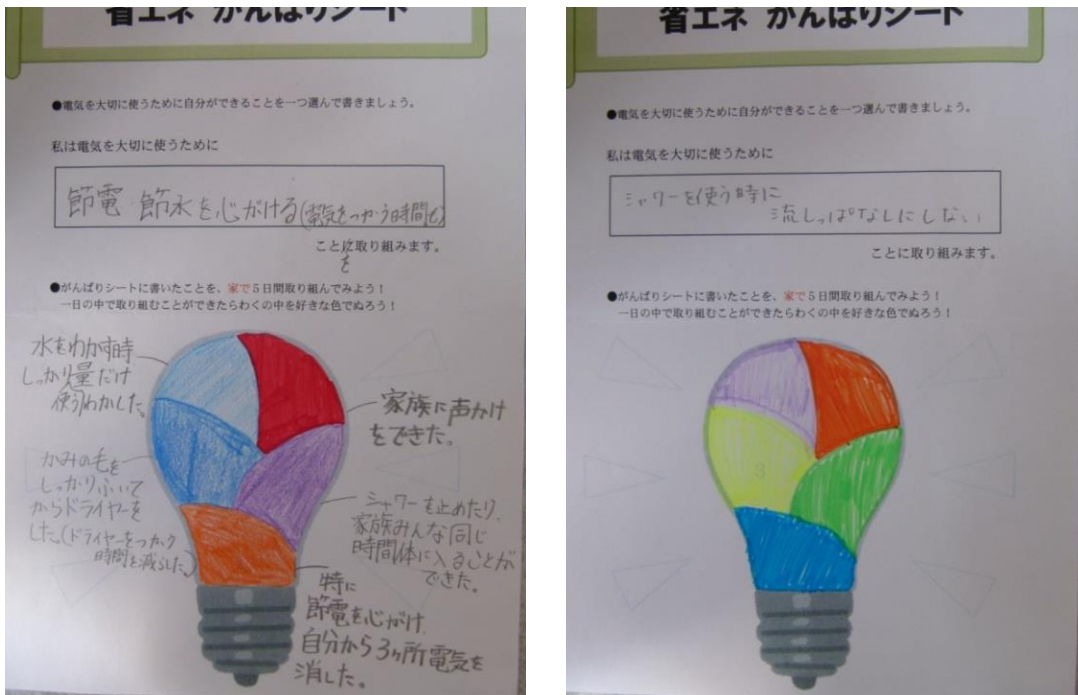 省エネ がんばりシート
●電気を大切に使うために自分ができることを一つ選んで書きましょう。
私は電気を大切に使うために
節電・節水を心がける(電気をつかう時間も)
ことに取り組みます。
を
●がんばりシートに書いたことを、家で5日間取り組んでみよう!
一日の中で取り組むことができたらわくの中を好きな色でぬろう!
水をわかす時
しっかり量だけ
使う)わかした。
家族に声かけ
をできた。
かみの毛を
しっかりふいて
からドライヤーを
した。(ドライヤーをつかう
時間を減らした。)
シャワーを止めたり、
家族みんな同じ
時間体に入ることが
できた。
特に
節電を心がけ、
自分から3ヶ所電気を
消した。
省エネ がんばりシート
●電気を大切に使うために自分ができることを一つ選んで書きましょう。
私は電気を大切に使うために
シャワーを使う時に
流しっぱなしにしない
ことに取り組みます。
●がんばりシートに書いたことを、家で5日間取り組んでみよう!
一日の中で取り組むことができたらわくの中を好きな色でぬろう!
3